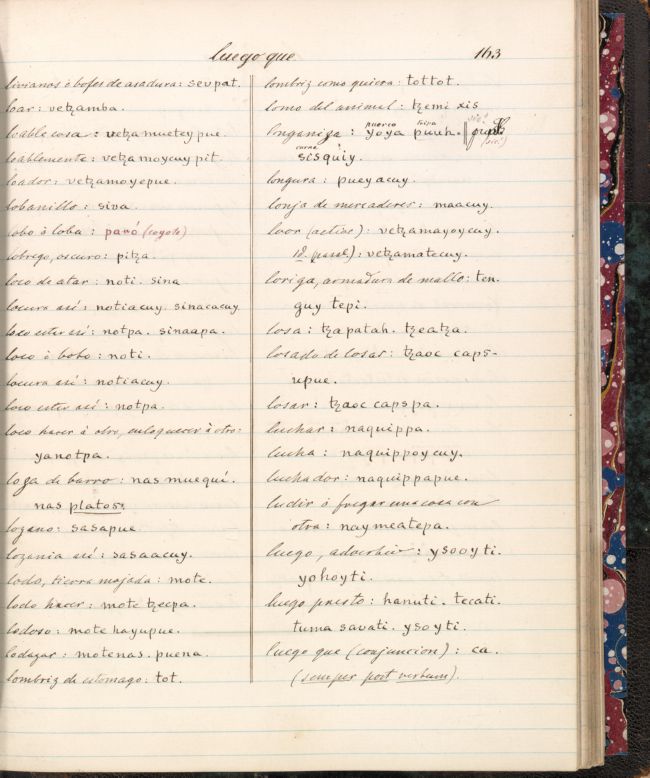 luego que 163
livianos ó bofes de asadura: seupat.
loar: vetzamba.
loable cosa: vetzamueteypue.
loablemente: vetzamoycuy pit.
loador: vetzamoyepue.
lobanillo: siva.
lobo ò loba: paró (coyote)
lóbrego, oscuro: pitza.
loco de atar: noti. sina
locura así: notiacuy. sinacacuy.
loco estar así: notpa. sinaapa.
loco ó bobo: noti.
locura así: notiacuy.
loco estar así: notpa.
loco hacer à otro, enloquecer à otro:
yanotpa.
loza de barro: nas muequí.
nas platos.
lozano: sasapue
lozania así: sasaacuy.
lodo, tierra mojada: mote.
lodo hacer: mote tzecpa.
lodoso: mote hayupue.
lodazar: motenas. puena.
lombriz de estomago: tot.
lombriz como quiera: tottot.
lomo del animal: tzemi xis
puerco tripa (sic!)
longaniza: yoya puuh.
carne (sic!)
sisquiy.
longura: pueyacuy.
lonja de mercaderes: maacuy.
loor (active): vetzamayoycuy.
id. passé): vetzamatecuy.
loriga, armadura de mallo: ten.
guy tepi.
losa: tzapatah. tzeatza.
losado de losas: tzaoc caps-
upue.
losar: tzaoc capspa.
luchar: naquippa.
lucha: naquippoycuy.
luchador: naquippapue.
ludir ó fregar una cosa con
otra: naymeatepa.
luego, adverbio: ysooyti.
yohoyti.
luego presto: hanuti. tecati.
tuma savati. ysoyti.
luego que (conjuncion): ca.
(semper post verbum).